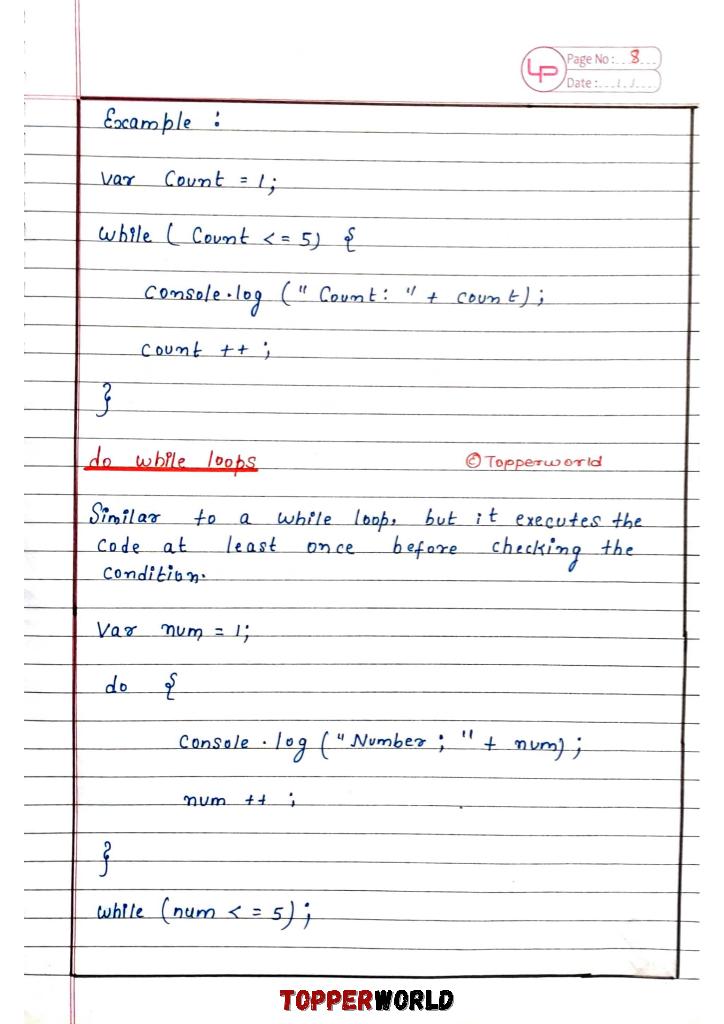 LP
Page No: 8
Date: / /
Example :
Var Count = 1;
While ( Count <= 5) {
Console.log (" Count: " + count);
count ++ ;
}
do while loops
© Topperworld
Similar to a while loop, but it executes the
code at least once before checking the
condition.
Var num = 1;
do {
Console . log ("Number ; " + num) ;
num ++ ;
}
while (num < = 5) ;
TOPPERWORLD